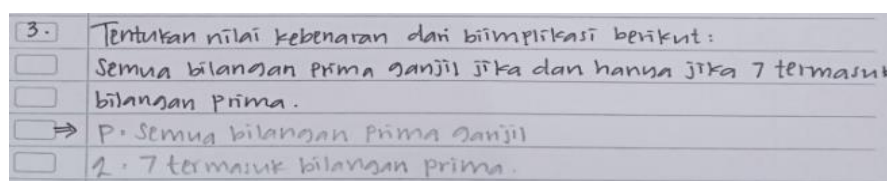 3. Tentukan nilai kebenaran dari biimplikasi berikut:
Semua bilangan prima ganjil jika dan hanya jika 7 termasuk
bilangan prima.
⇒ P. Semua bilangan prima ganjil
q. 7 termasuk bilangan prima.